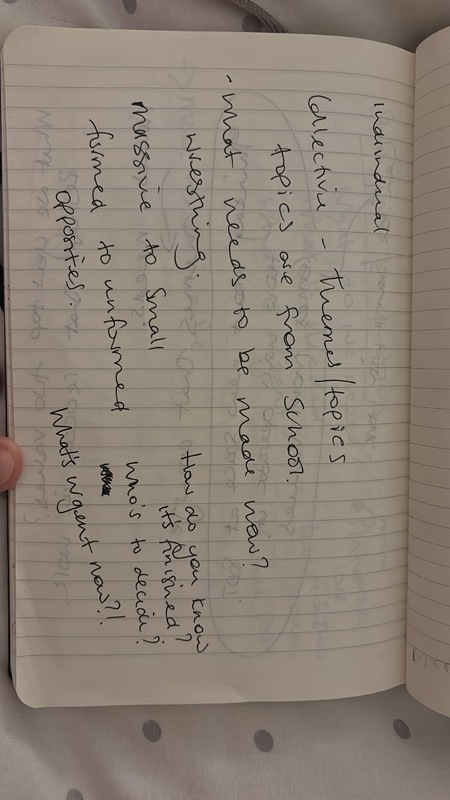 individual
Collective - Themes/topics
topics are from School.
- What needs to be made now?
wrestling.
massive to small
formed to unformed
opposites.
How do you know
it's finished?
who's to decide?
What's urgent now?!